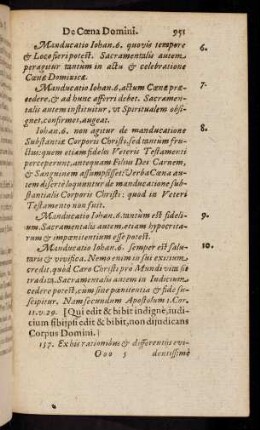 De Cœna Domini. 951
Manducatio Iohan. 6. quovis tempore 6.
& Loco fieri potest. Sacramentalis autem
peragitur tantùm in actu & celebratione
Cœnæ Dominicæ.
Manducatio Iohan. 6. actum Cœnæ præ- 7.
cedere, & ad hunc afferri debet. Sacramen-
talis autem instituitur, ut Spiritualem obsi-
gnet, confirmet, augeat.
Iohan. 6. non agitur de manducatione 8.
Substantiæ Corporis Christi, sed tantùm fru-
itur, quem etiam fideles Veteris Testamenti
perceperunt, antequam Filius Dei Carnem,
& Sanguinem assumpsisset: Verba Cœnæ au-
tem disertè loquuntur de manducatione sub-
stantialis Corporis Christi: quod in Veteri
Testamento non fuit.
Manducatio Iohan. 6. tantùm est fideli- 9.
um. Sacramentalis autem etiam hypocrita-
rum & impœnitentium esse potest.
Manducatio Iohan. 6. semper est salu- 10.
taris & vivifica. Nemo enim in sui exitium
credit, quod Caro Christi pro Mundi vita sit
tradita. Sacramentalis autem in Iudicium
cedere potest, cùm sine pœnitentia & fide su-
scipitur. Nam secundum Apostolum 1. Cor.
11. v. 29. [Qui edit & bibit indignè, iudi-
cium sibi ipsi edit & bibit, non dijudicans
Corpus Domini.]
137. Ex his rationibus & differentiis evi-
Ooo 5 dentissimè